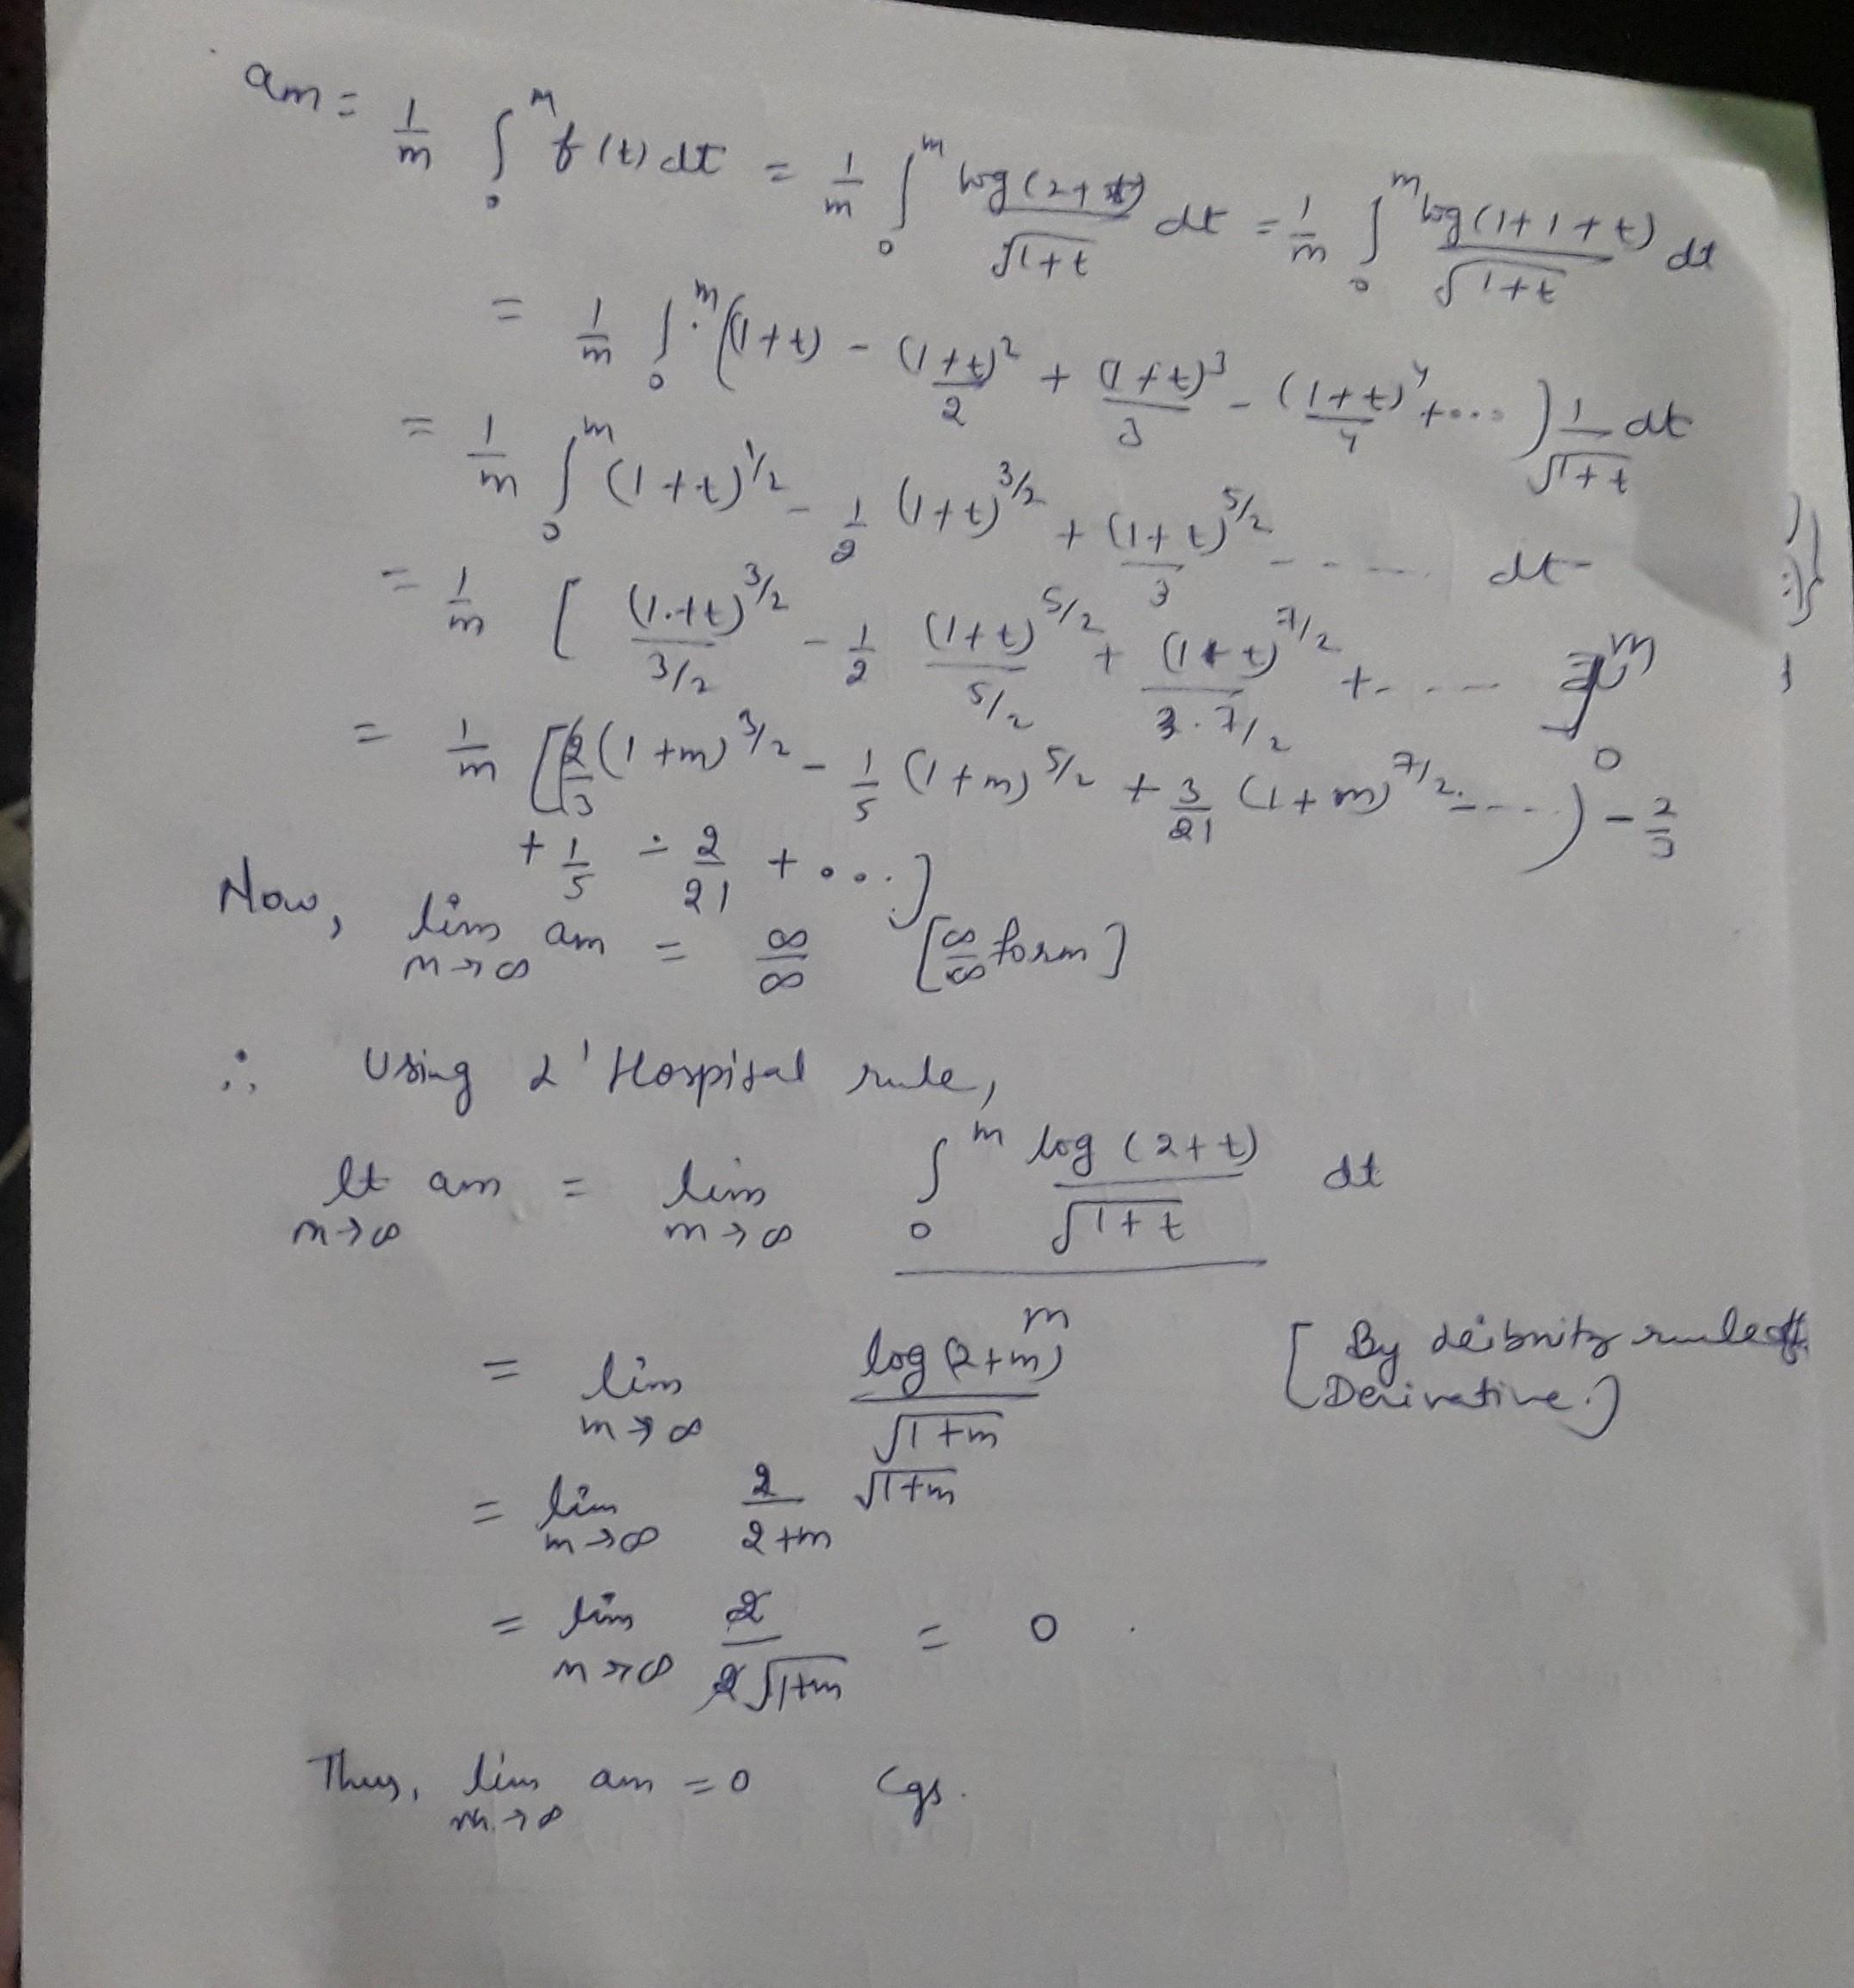 am = 1/m ∫₀^m f(t) dt = 1/m ∫₀^m log(2+t)/√(1+t) dt = 1/m ∫₀^m log(1+1+t)/√(1+t) dt
= 1/m ∫₀^m ((1+t) - (1+t)²/2 + (1+t)³/3 - (1+t)⁴/4 + ...) 1/√(1+t) dt
= 1/m ∫₀^m (1+t)^1/2 - 1/2 (1+t)^3/2 + (1+t)^5/2/3 - - - .... dt
= 1/m [ (1+t)^3/2/(3/2) - 1/2 (1+t)^5/2/(5/2) + (1+t)^7/2/(3·7/2) + - .... ]₀^m
= 1/m [(2/3 (1+m)^3/2 - 1/5 (1+m)^5/2 + 3/21 (1+m)^7/2 - ....) - 2/3
+ 1/5 - 2/21 + ...]
Now, lim m→∞ am = ∞/∞ [∞/∞ form]
∴ Using L'Hospital rule,
lt m→∞ am = lim m→∞ ∫₀^m log(2+t)/√(1+t) dt / m
= lim m→∞ log(2+m)/√(1+m) [By Leibnitz rule of
Derivative.]
= lim m→∞ 2/(2+m) √(1+m)
= lim m→∞ 2/(2√(1+m)) = 0.
Thus, lim m→∞ am = 0 Cgs.